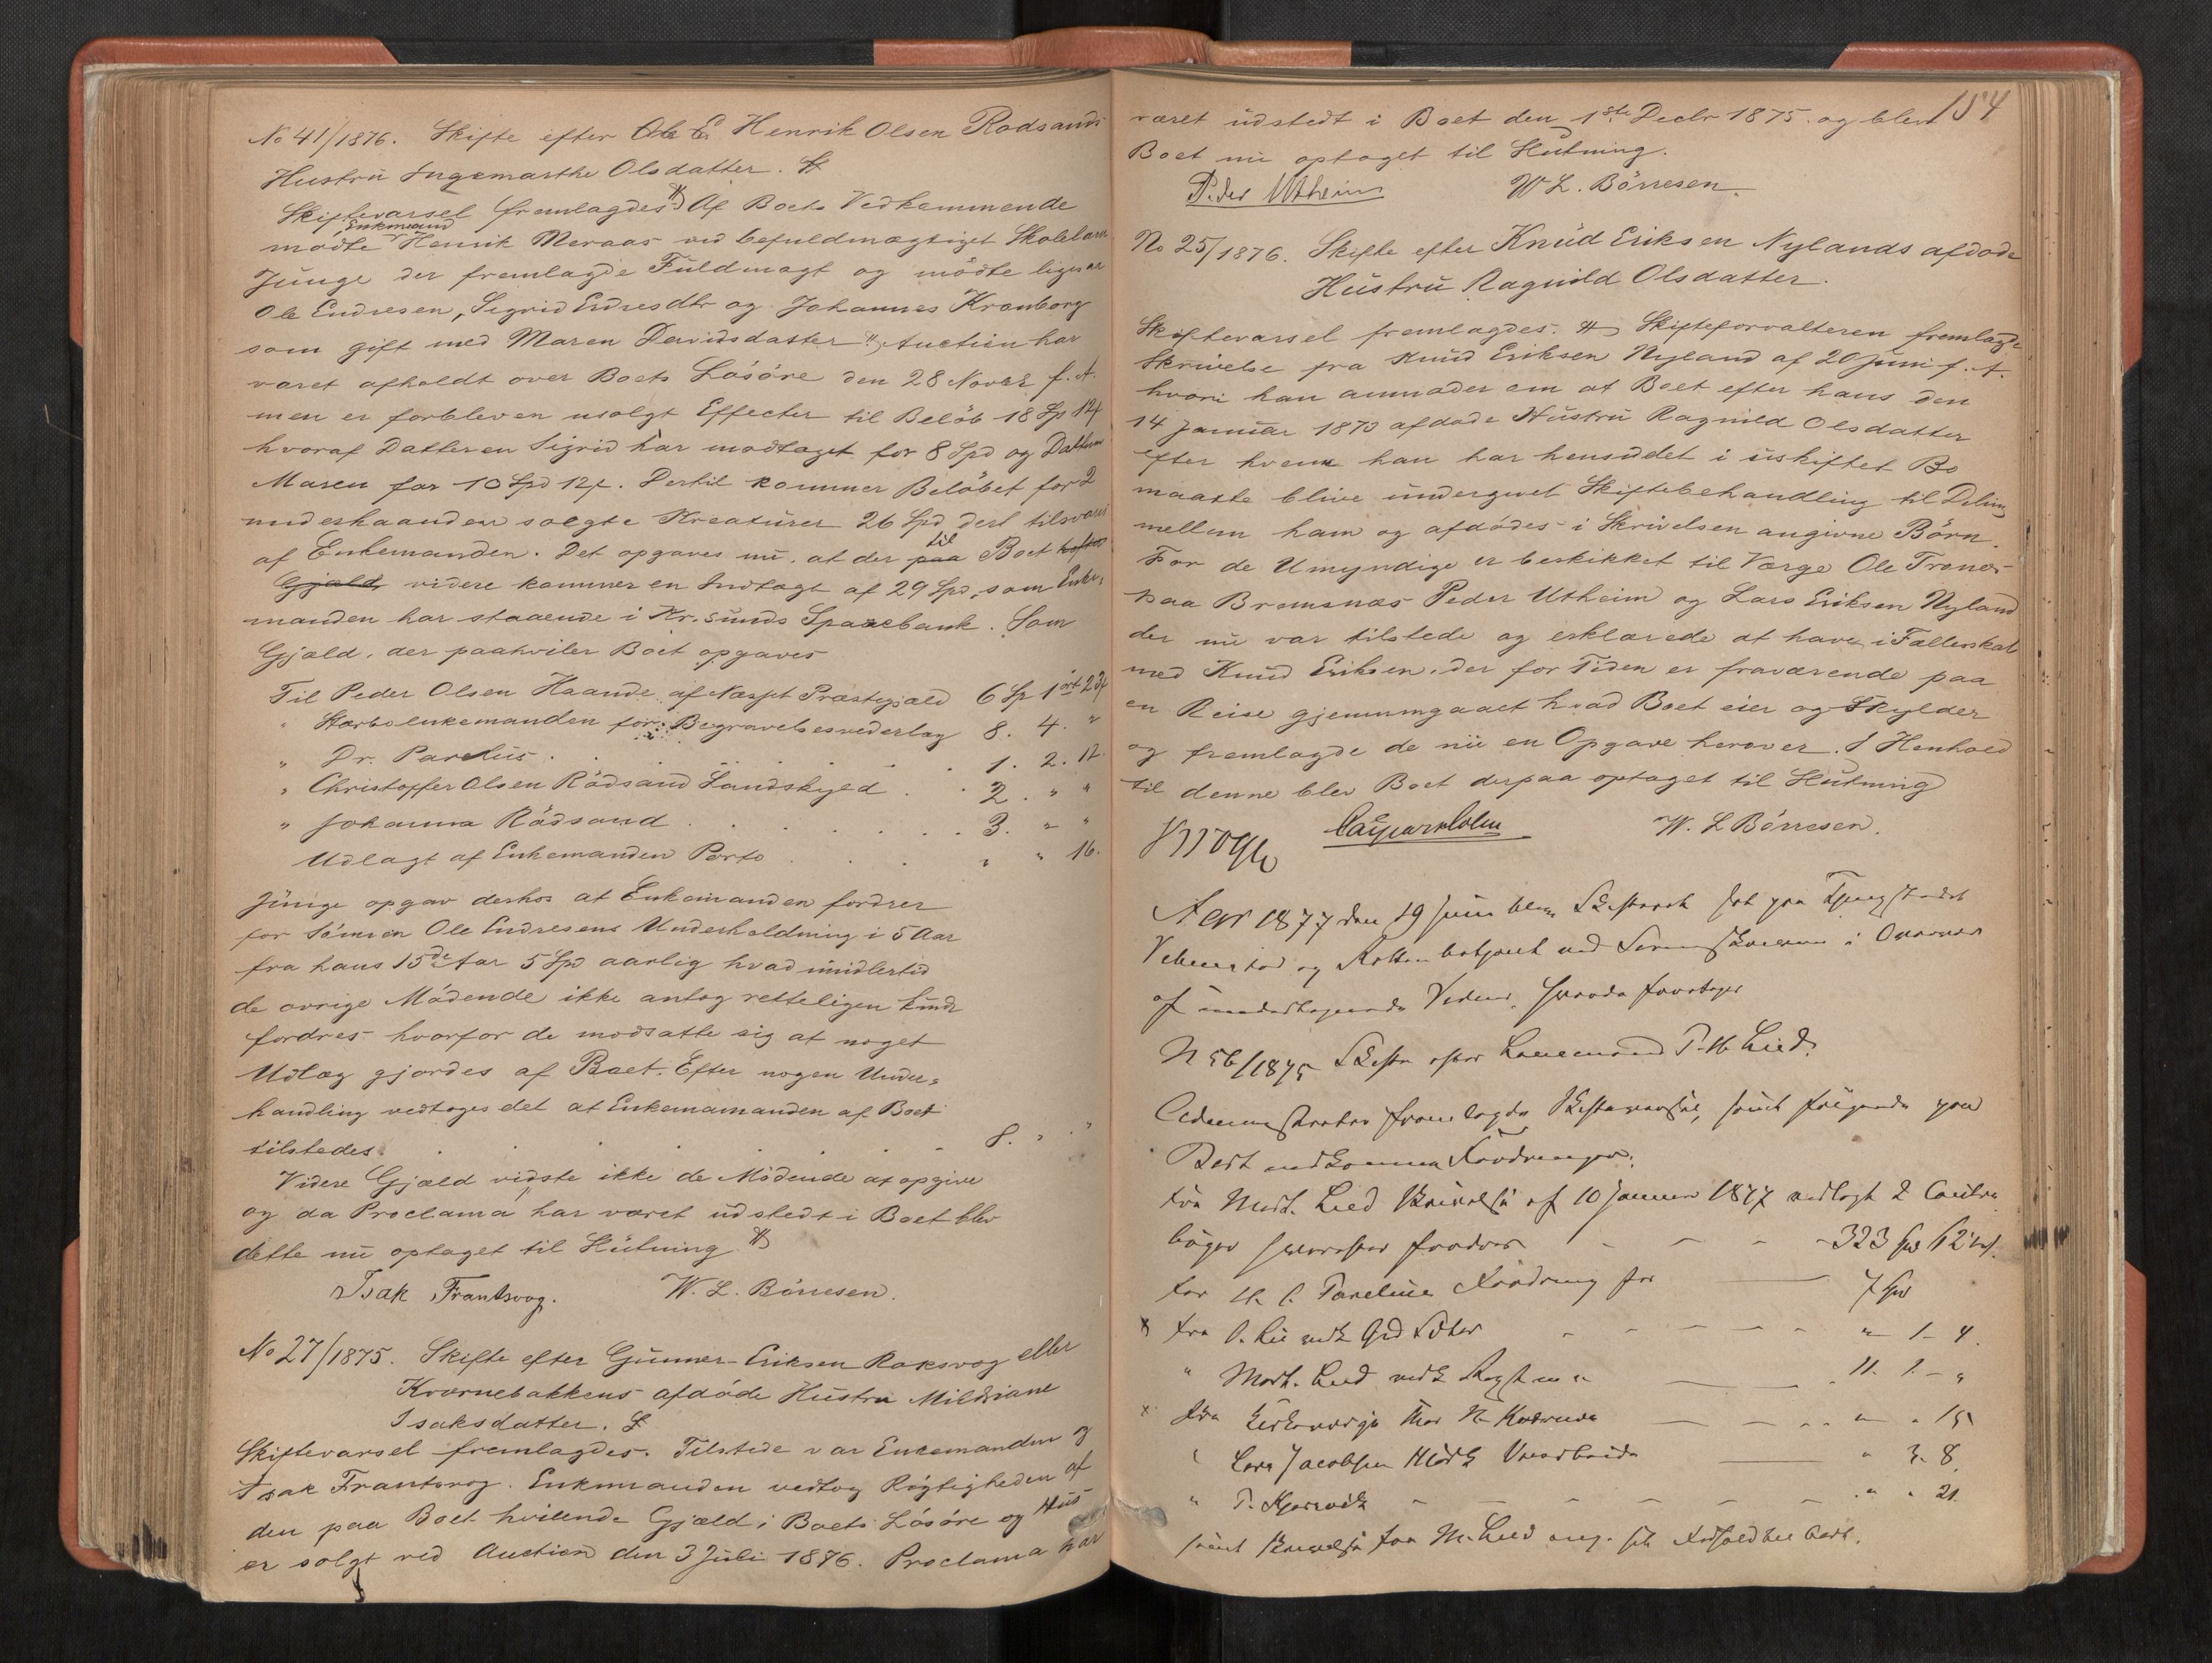 No 41/1876. Skifte efter Henrik Olsen Rodsands
Hustru Ingemarthe Olsdatter.
Skiftevarsel fremlagdes Af Boets Vedkommende
mødte Enkmand Henrik Meraas ved befuldmægtiget Skolelærer
Junge der fremlagde Fuldmagt og mødte ligesaa
Ole Endresen, Sigrid Endresdtr og Johannes Kranborg
som gift med Maren Davidsdatter Auction har
været afholdt over Boets Løsøre den 28 Novbr f. A.
men er forbleven usolgt Effecter til Beløb 18 Sp 12
hvoraf Datteren Sigrid har modtaget for 8 Spd og Datteren
Maren for 10 Spd 12 s. Dertil kommer Beløbet for 2
underhaanden solgte Kreaturer 26 Spd
af Enkemanden. Det opgaves nu, at der paa til Boet
Gjæld videre kommer en Indtægt af 29 Spd, som Enke-
manden har staaende i Kr.sunds Sparebank. Som
Gjæld, der paahviler Boet opgaves
Til Peder Olsen Haande af Næsset Præstegjæld 6 Sp 1 ort 2
" Størboenkemanden for Begravelsesvederlag 8. 4. "
" Dr. Parelius . 1. 2. 12
" Christoffer Olsen Rødsand Landskyld . 2. " "
" Johanna Rødsand . 3. " "
Udlagt af Enkemanden Porto . " " 16.
Junge opgav derhos at Enkemanden fordrer
for Sønnen Ole Endresens Underholdning i 5 Aar
fra hans 15de Aar 5 Spd aarlig hvad imidlertid
de øvrige Mødende ikke antog retteligen kunde
fordres hvorfor de modsatte sig at noget
Udlæg gjordes af Boet. Efter nogen Under-
handling vedtoges det at Enkemamanden af Boet
tilstedes . 8. " "
Videre Gjæld vidste ikke de Mødende at opgive
og da Proclama har været udstedt i Boet blev
dette nu optaget til Slutning
Isak Frantsvog. W. L. Börresen.
No 27/1875. Skifte efter Gunner Eriksen Raksvog eller
Kvernebakkens afdøde Hustru Mildriane
Isaksdatter.
Skiftevarsel fremlagdes. Tilstede var Enkemanden og
Isak Frantsvog. Enkmanden vedtog Rigtigheden af
den paa Boet hvilende Gjæld i Boets Løsøre og Hus
er solgt ved Auction den 3 Juli 1876. Proclama har
154
været udstedt i Boet den 1ste Decbr 1875 og blev
Boet nu optaget til Slutning.
Peder Utheim W L. Börresen.
No 25/1876. Skifte efter Knud Eriksen Nylands afdøde
Hustru Ragnild Olsdatter.
Skiftevarsel fremlagdes. Skifteforvalteren fremlagde
Skrivelse fra Knud Eriksen Nyland af 20 Juni f. A.
hvori han anmoder om at Boet efter hans den
14 Januar 1870 afdøde Hustru Ragnild Olsdatter
efter hvem han har hensiddet i uskiftet Bo
maatte blive undergivet Skiftebehandling til Deling
mellem ham og afdødes i Skrivelsen angivne Börn.
For de Umyndige er beskikket til Værge Ole Tranes
paa Bremsnæs Peder Utheim og Lars Eriksen Nyland
der nu var tilstede og erklærede at have i Fællesskab
med Knud Eriksen, der for Tiden er fraværende paa
en Reise gjennemgaaet hvad Boet eier og skylder
og fremlagde de nu en Opgave herover. I Henhold
til denne blev Boet derpaa optaget til Slutning
Krogh Casper Holm W. L Börresen.
Aar 1877 den 19 Juni blev Skifteret sat paa Thingstedet
Vebenstad og Retten betjent ved Sorenskriveren i Overvær
af undertegnede Vidner. Hvorda foretoges
N 56/1875 Skifte efter Lensmand P. M. Lied.
Administrator fremlagde Skiftevarsel, samt følgende paa
Boet vedkommen Fordringer:
Fra Mort. Lied Skrivelse af 10 Januar 1877 vedlagt 2 Contra
bøger hvorefter fordres - 323 Spd 12 s.
For Parelius Fordring for 7 Spd
x Fra O. Lie - - - " 1 - 4.
" Mort. Lied 11. 1. - "
x Fra " " 15
" Lars Jacobsen " 3. 8
" P. - - - " " 21
samt Skrivelse fra M. Lied ang. sit